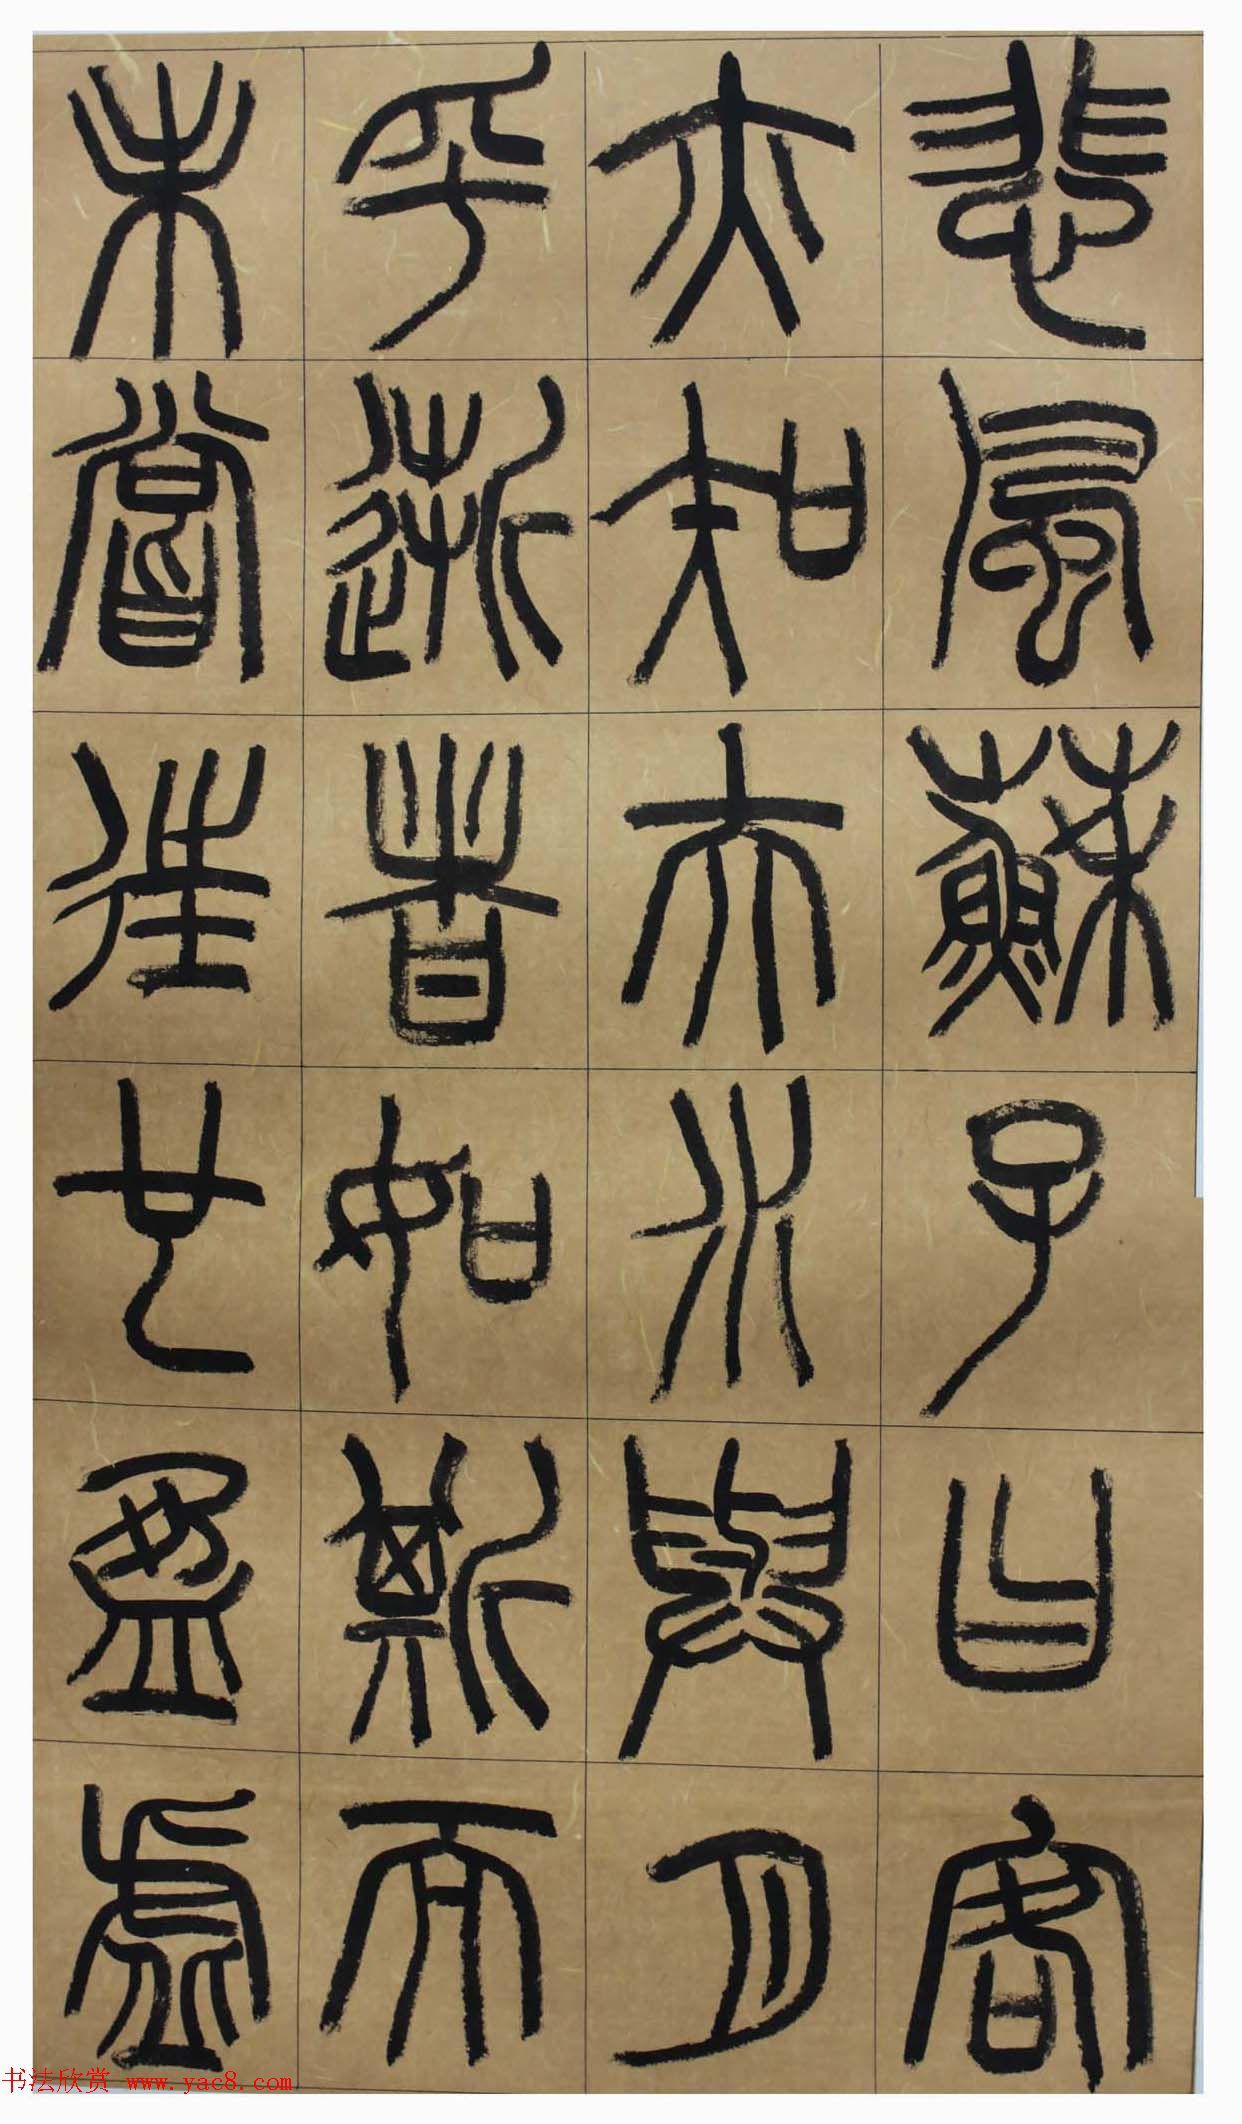 悲風蘇子曰客
亦知夫水與月
乎逝者如斯而
未嘗往也盈虛
书法欣赏 www.yac8.com